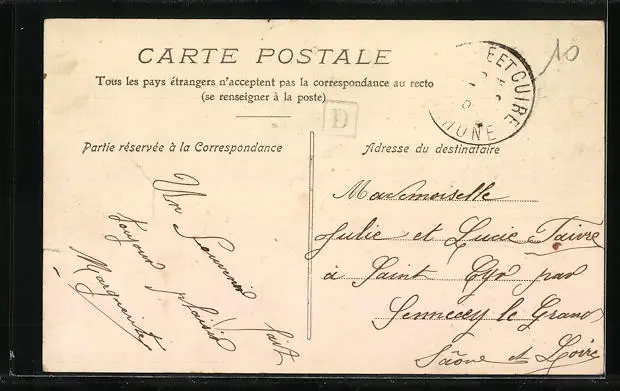 CARTE POSTALE
Tous les pays étrangers n'acceptent pas la correspondance au recto
(se renseigner à la poste)
D
ET CUIRE
RHONE
10
Partie réservée à la Correspondance
Un Souvenir fait
toujours plaisir
Marguerite
Adresse du destinataire
Mademoiselle
Julie et Lucie Faivre
à Saint Cyr par
Sennecey le Grand
Saône et Loire